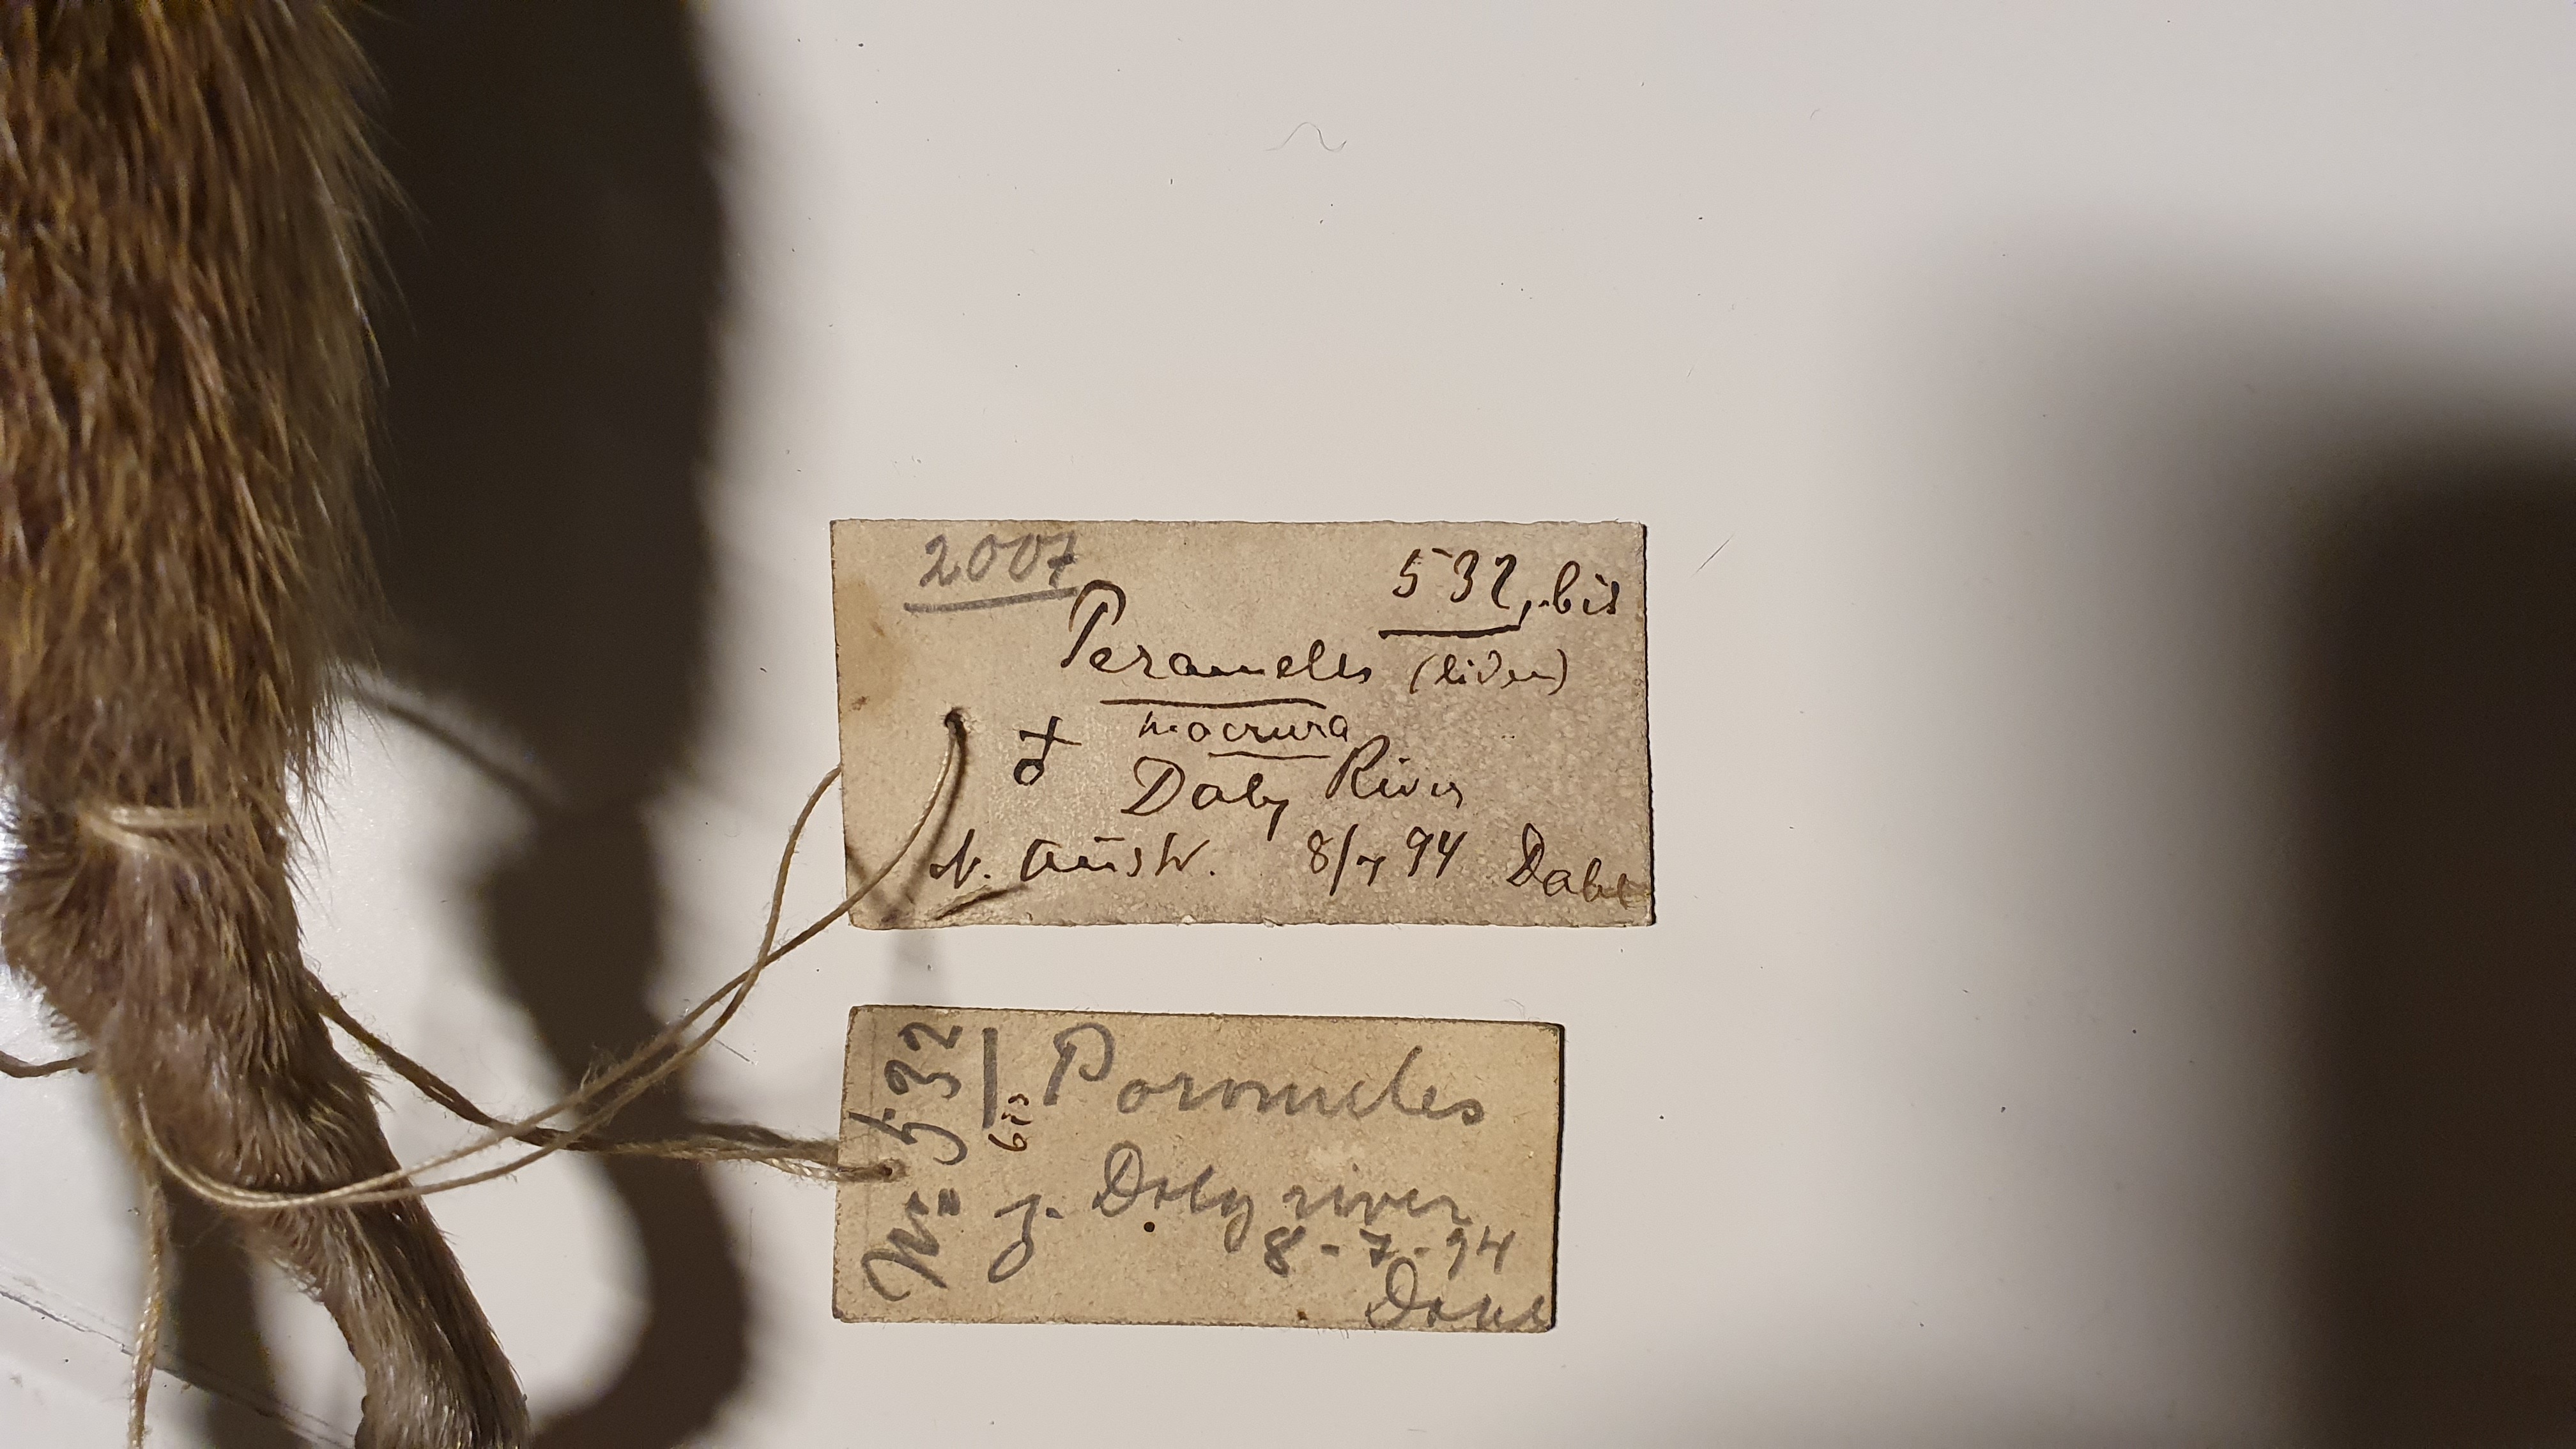 2007 532, bis
Perameles (liden)
macrura
♂ Daly River
N. Austr. 8/7 94 Dahl
No 532
bis
Poromeles
J. Daly river
8-7-94
Dahl